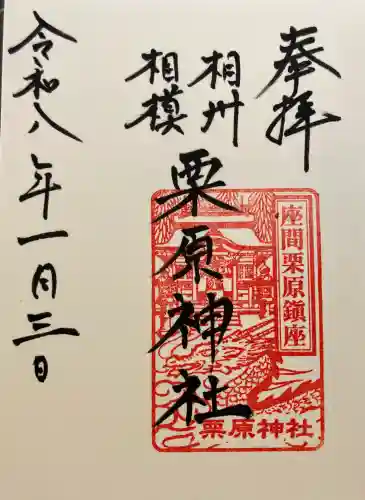 奉拝
相州
相模
栗原神社
座間栗原鎮座
栗原神社
令和八年一月三日